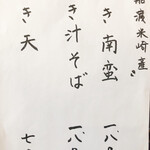 船渡米崎産
き南蛮 一八
き汁そば 一八
き天 七